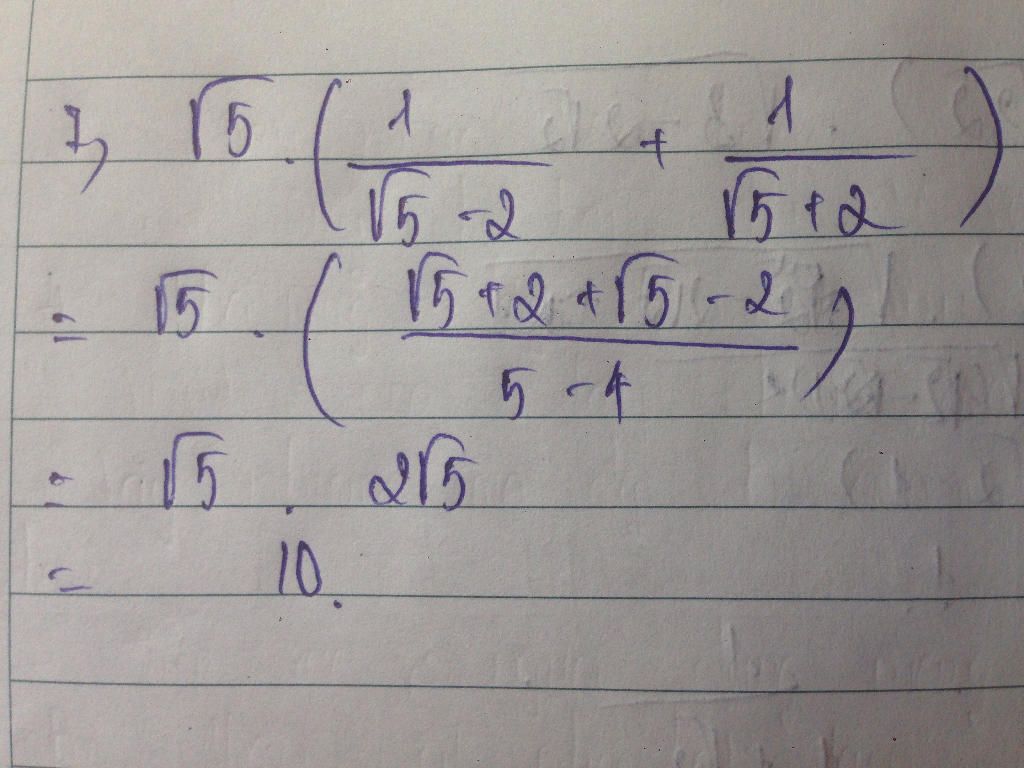 7, √5 . ( 1/(√5 - 2) + 1/(√5 + 2) )
= √5 . ( (√5 + 2 + √5 - 2)/(5 - 4) )
= √5 . 2√5
= 10.